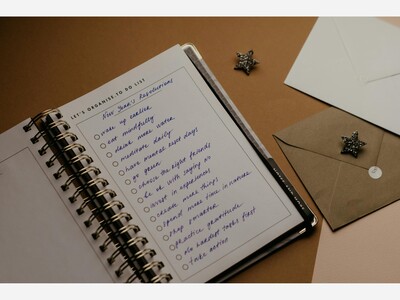 LET'S ORGANISE: TO DO LIST
New Year's Resolutions
wake up earlier
eat mindfully
drink more water
meditate daily
have mental rest days
go green
choose the right friends
be ok with saying no
invest in experiences
create more things
spend more time in nature
shop smarter
practice gratitude
do hardest tasks first
take action